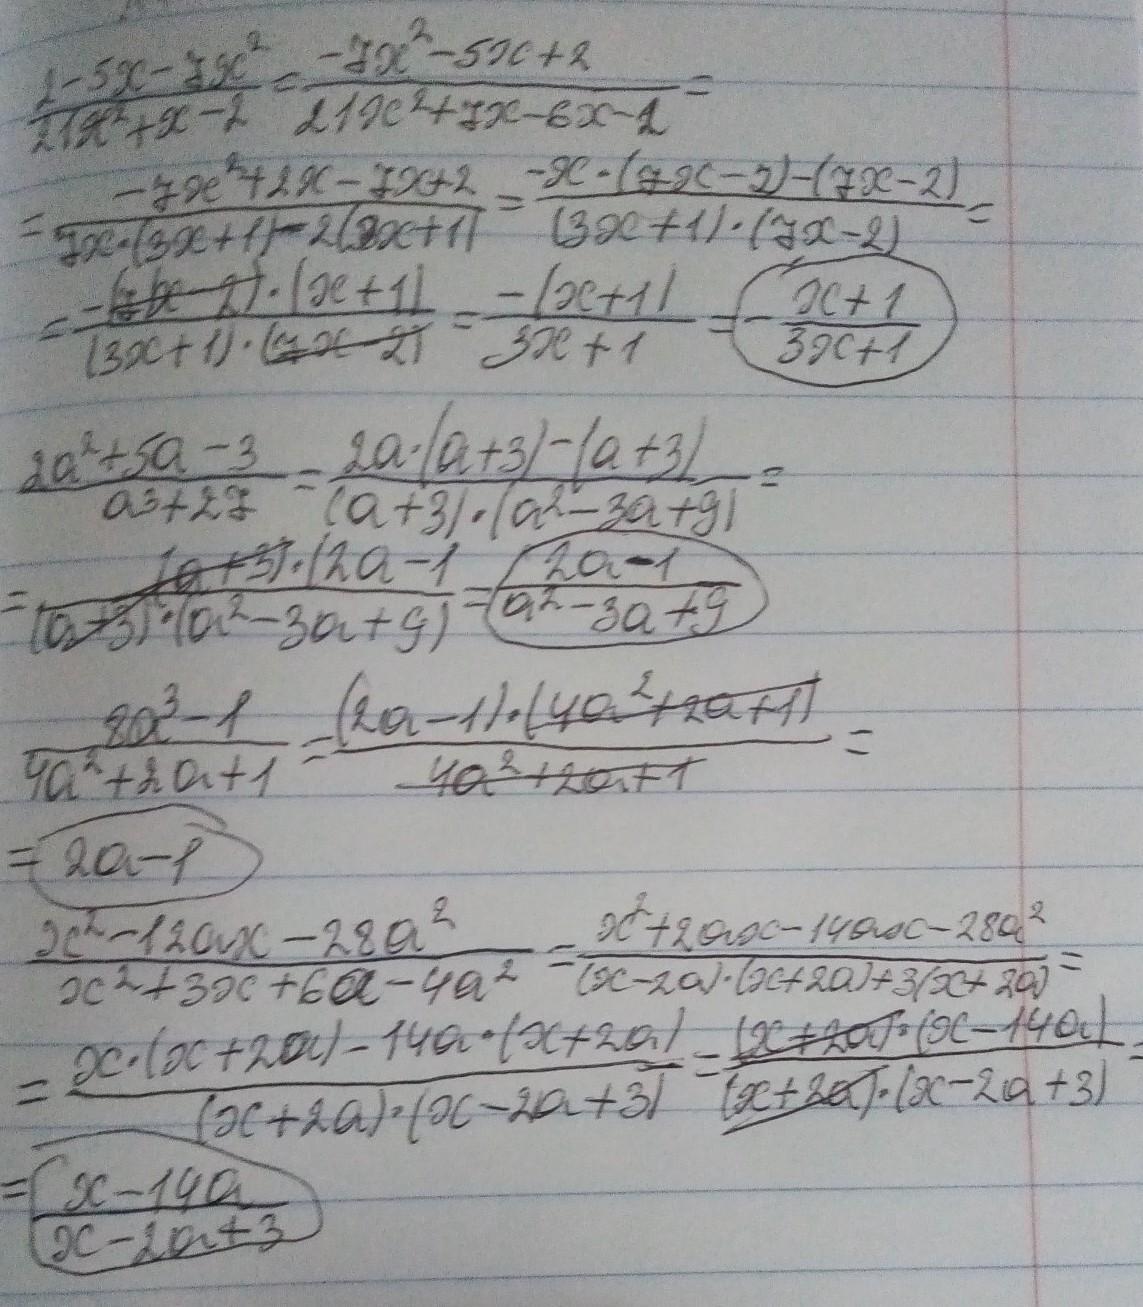 (2-5x-7x²)/(21x²+x-2) = (-7x²-5x+2)/(21x²+7x-6x-2) =
= (-7x²+2x-7x+2)/(7x·(3x+1)-2(3x+1)) = (-x·(7x-2)-(7x-2))/((3x+1)·(7x-2)) =
= (-(7x-2)·(x+1))/((3x+1)·(7x-2)) = (-(x+1))/(3x+1) = -(x+1)/(3x+1)
(2a²+5a-3)/(a3+27) = (2a·(a+3)-(a+3))/((a+3)·(a²-3a+9)) =
= ((a+3)·(2a-1)/((a+3)·(a²-3a+9)) = (2a-1)/(a²-3a+9)
(8a³-1)/(4a²+2a+1) = ((2a-1)·(4a²+2a+1))/(4a²+2a+1) =
= 2a-1
(x²-12ax-28a²)/(x²+3x+6a-4a²) = (x²+2ax-14ax-28a²)/((x-2a)·(x+2a)+3(x+2a)) =
= (x·(x+2a)-14a·(x+2a))/((x+2a)·(x-2a+3)) = ((x+2a)·(x-14a))/((x+2a)·(x-2a+3)) =
= (x-14a)/(x-2a+3)